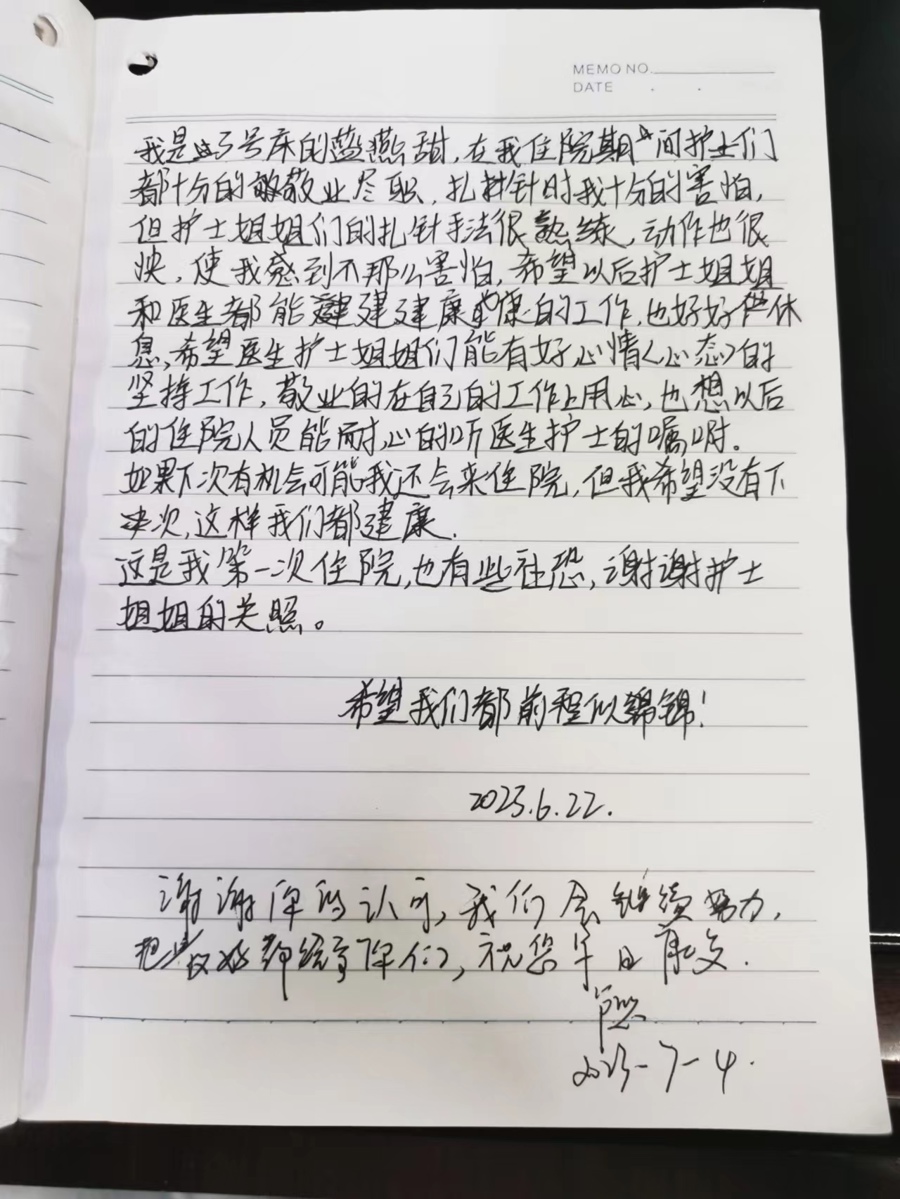 MEMO NO.
DATE . .
我是53号床的蓝燕甜,在我住院期间护士们
都十分的敬业尽职,扎针时我十分的害怕,
但护士姐姐们的扎针手法很熟练,动作也很
快,使我感到不那么害怕,希望以后护士姐姐
和医生都能建建康康的工作,也好好休
息,希望医生护士姐姐们能有好心情(心态)的
坚持工作,敬业的在自己的工作上用心,也想以后
的住院人员能耐心的听医生护士的嘱咐.
如果下次有机会可能我还会来住院,但我希望没有下
次,这样我们都建康.
这是我第一次住院,也有些社恐,谢谢护士
姐姐的关照。
希望我们都前程似锦!
2023.6.22.
谢谢你的认可,我们会继续努力,
把最好都给你们,祝您早日康复.
2023-7-4.